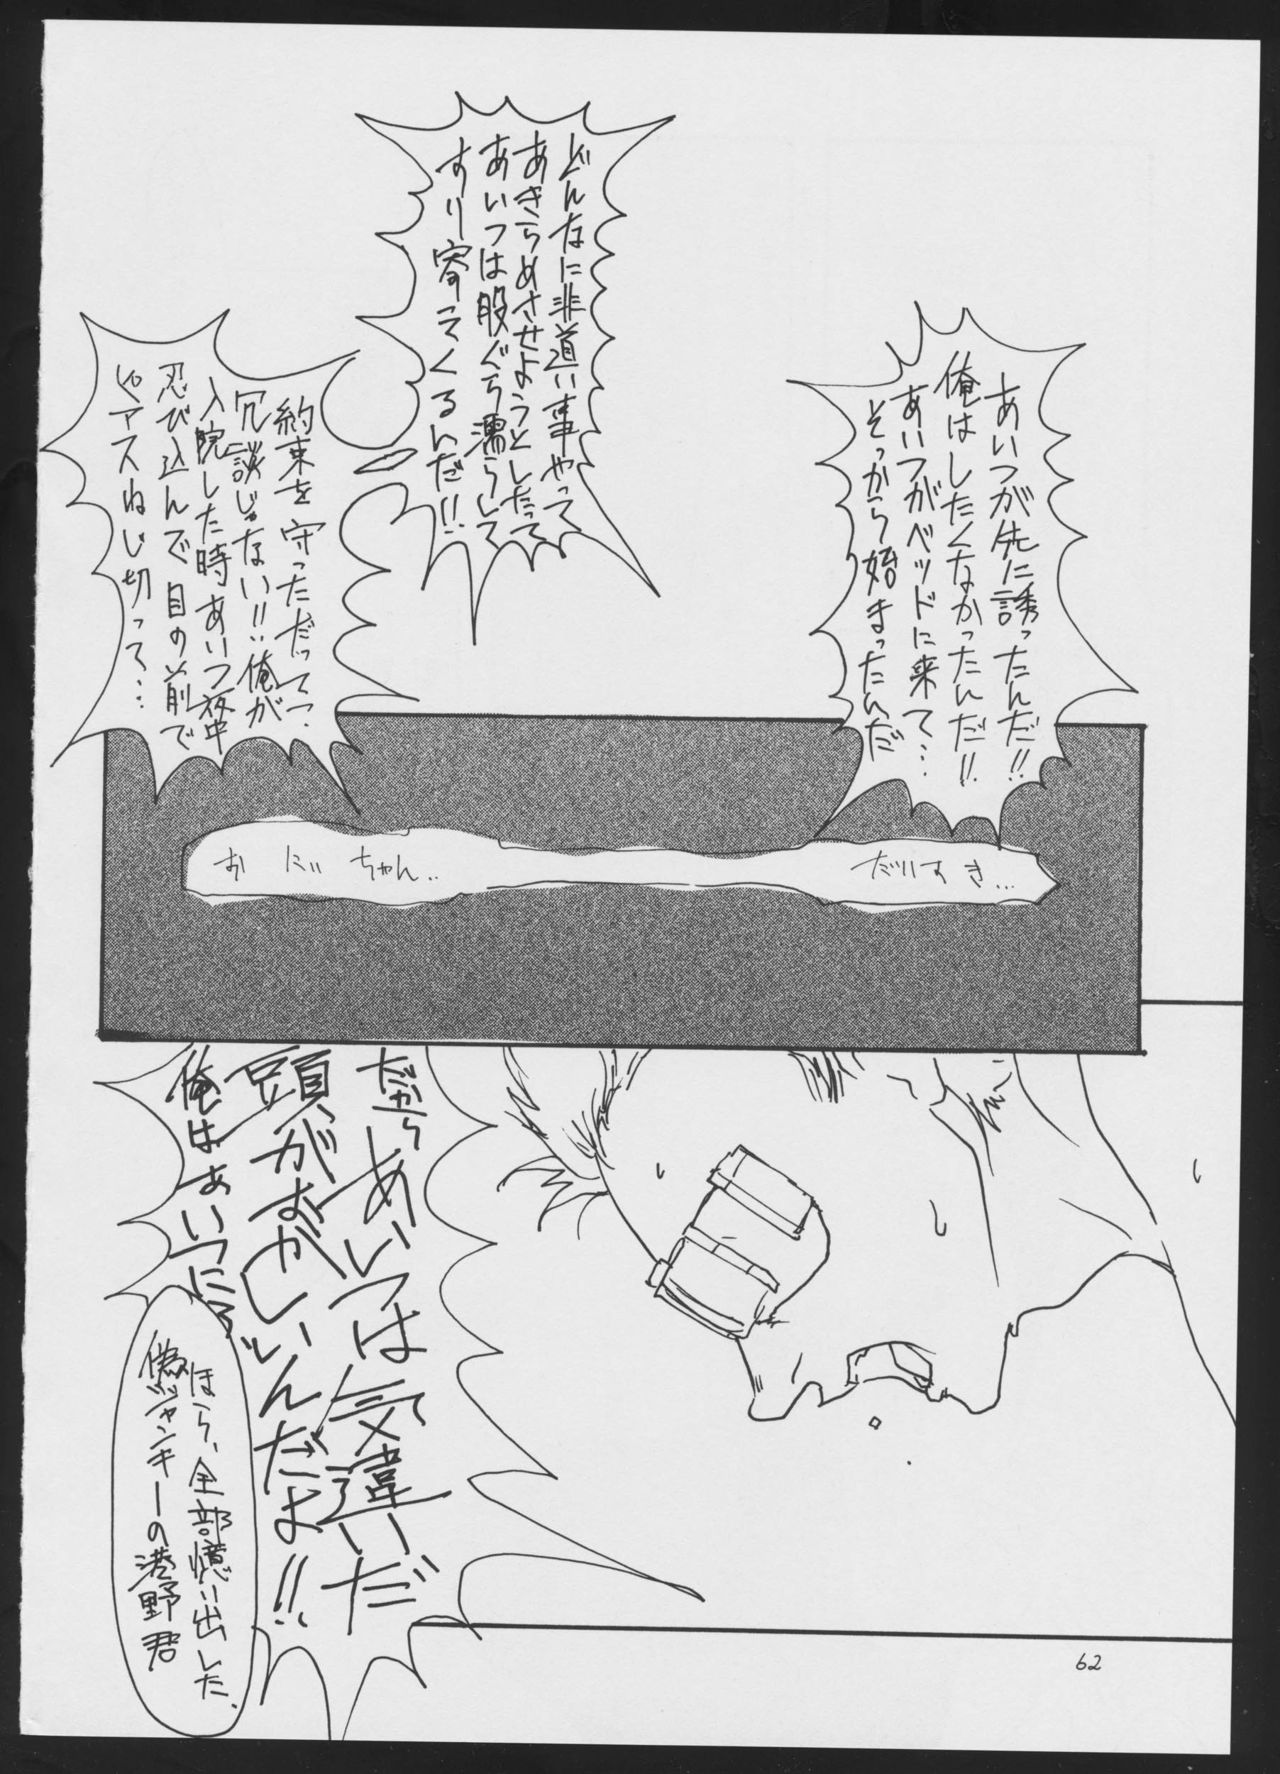 あいつが先に誘ったんだ!!
俺はしたくなかったんだ!!
あいつがベッドに来て…
そっから始まったんだ
どんなに非道い事やって
あきらめさせようとしたって
あいつは股ぐら濡らして
すり寄ってくるんだ!!
約束を守っただってっ.
冗談じゃない!!俺が
入院した時あいつ夜中
忍び込んで目の前で
ピアスねじ切って…
おにいちゃん..
だいすき...
だから あいつは気違いだ
頭がおかしいんだよ!!
俺はあいつに
ほら、全部憶い出した.
偽ジャンキーの港野君
62